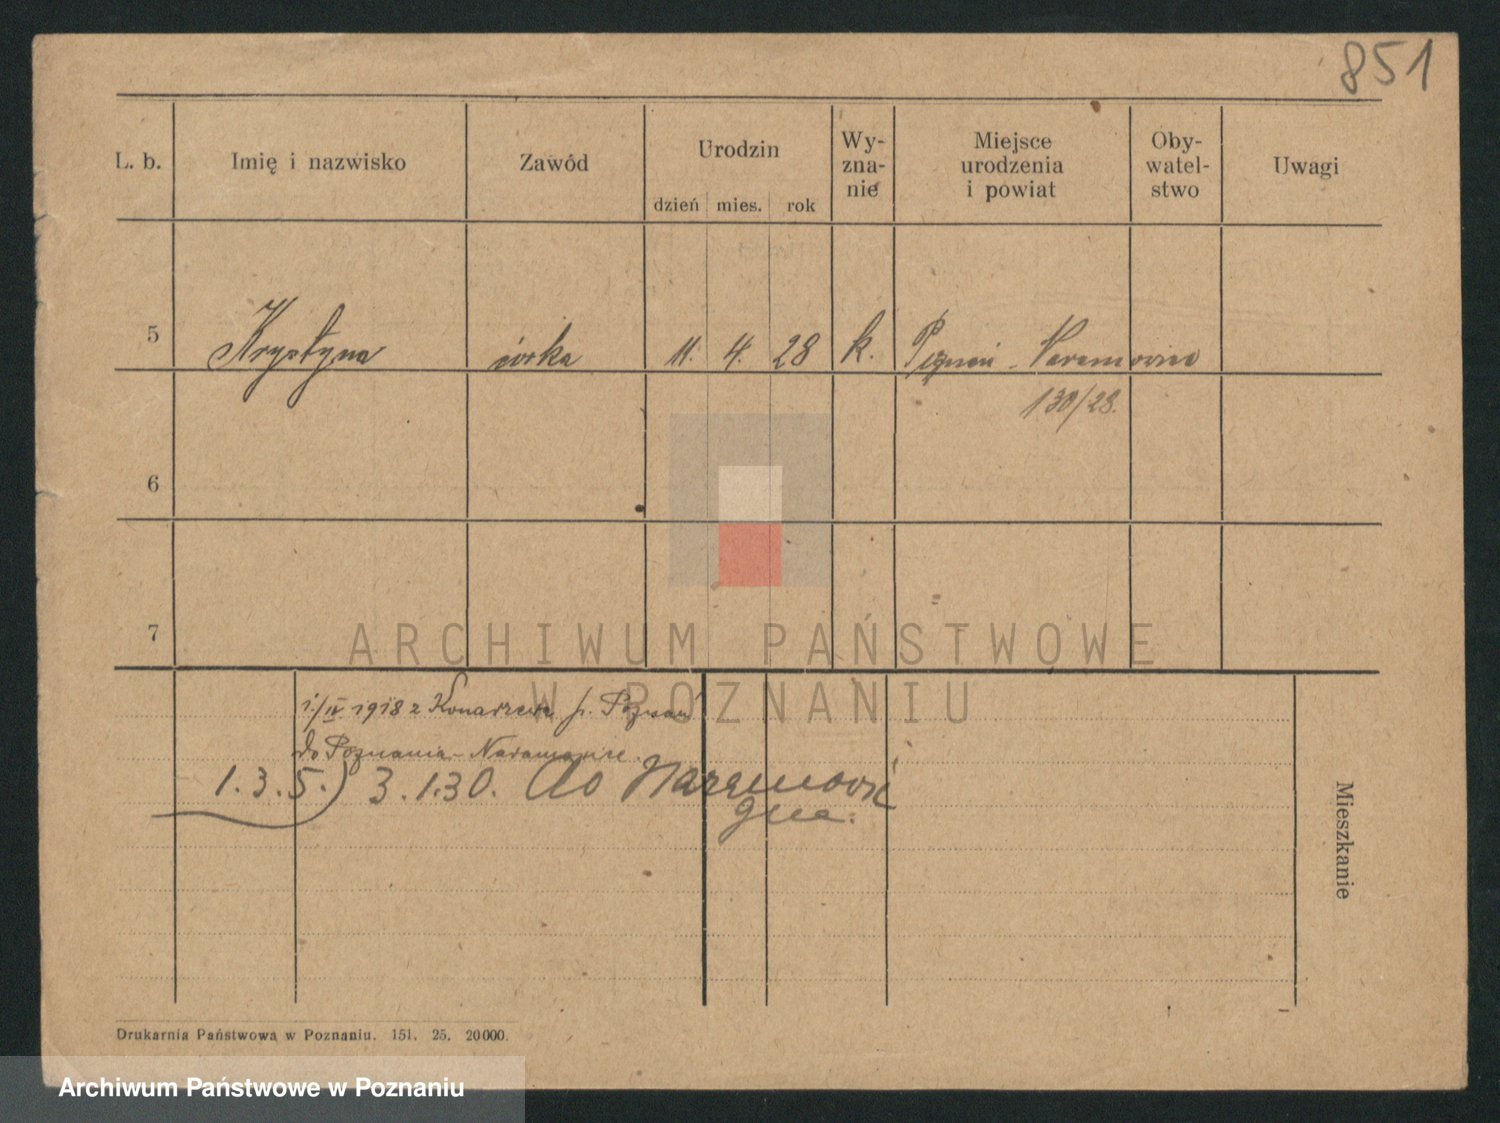 851
L. b. Imię i nazwisko Zawód Urodzin dzień mies. rok Wy-zna-nie Miejsce urodzenia i powiat Oby-watel-stwo Uwagi
5 Krystyna córka 11. 4. 28 k. Poznań - Naramowice
130/28.
6
7
ARCHIWUM PAŃSTWOWE
W POZNANIU
1./IV 1918 z Konarzewa p. Poznań
do Poznania - Naramowice.
1.3.5.) 3.1.30. do Naramowic
Mieszkanie
Drukarnia Państwowa w Poznaniu. 151. 25. 20000.
Archiwum Państwowe w Poznaniu